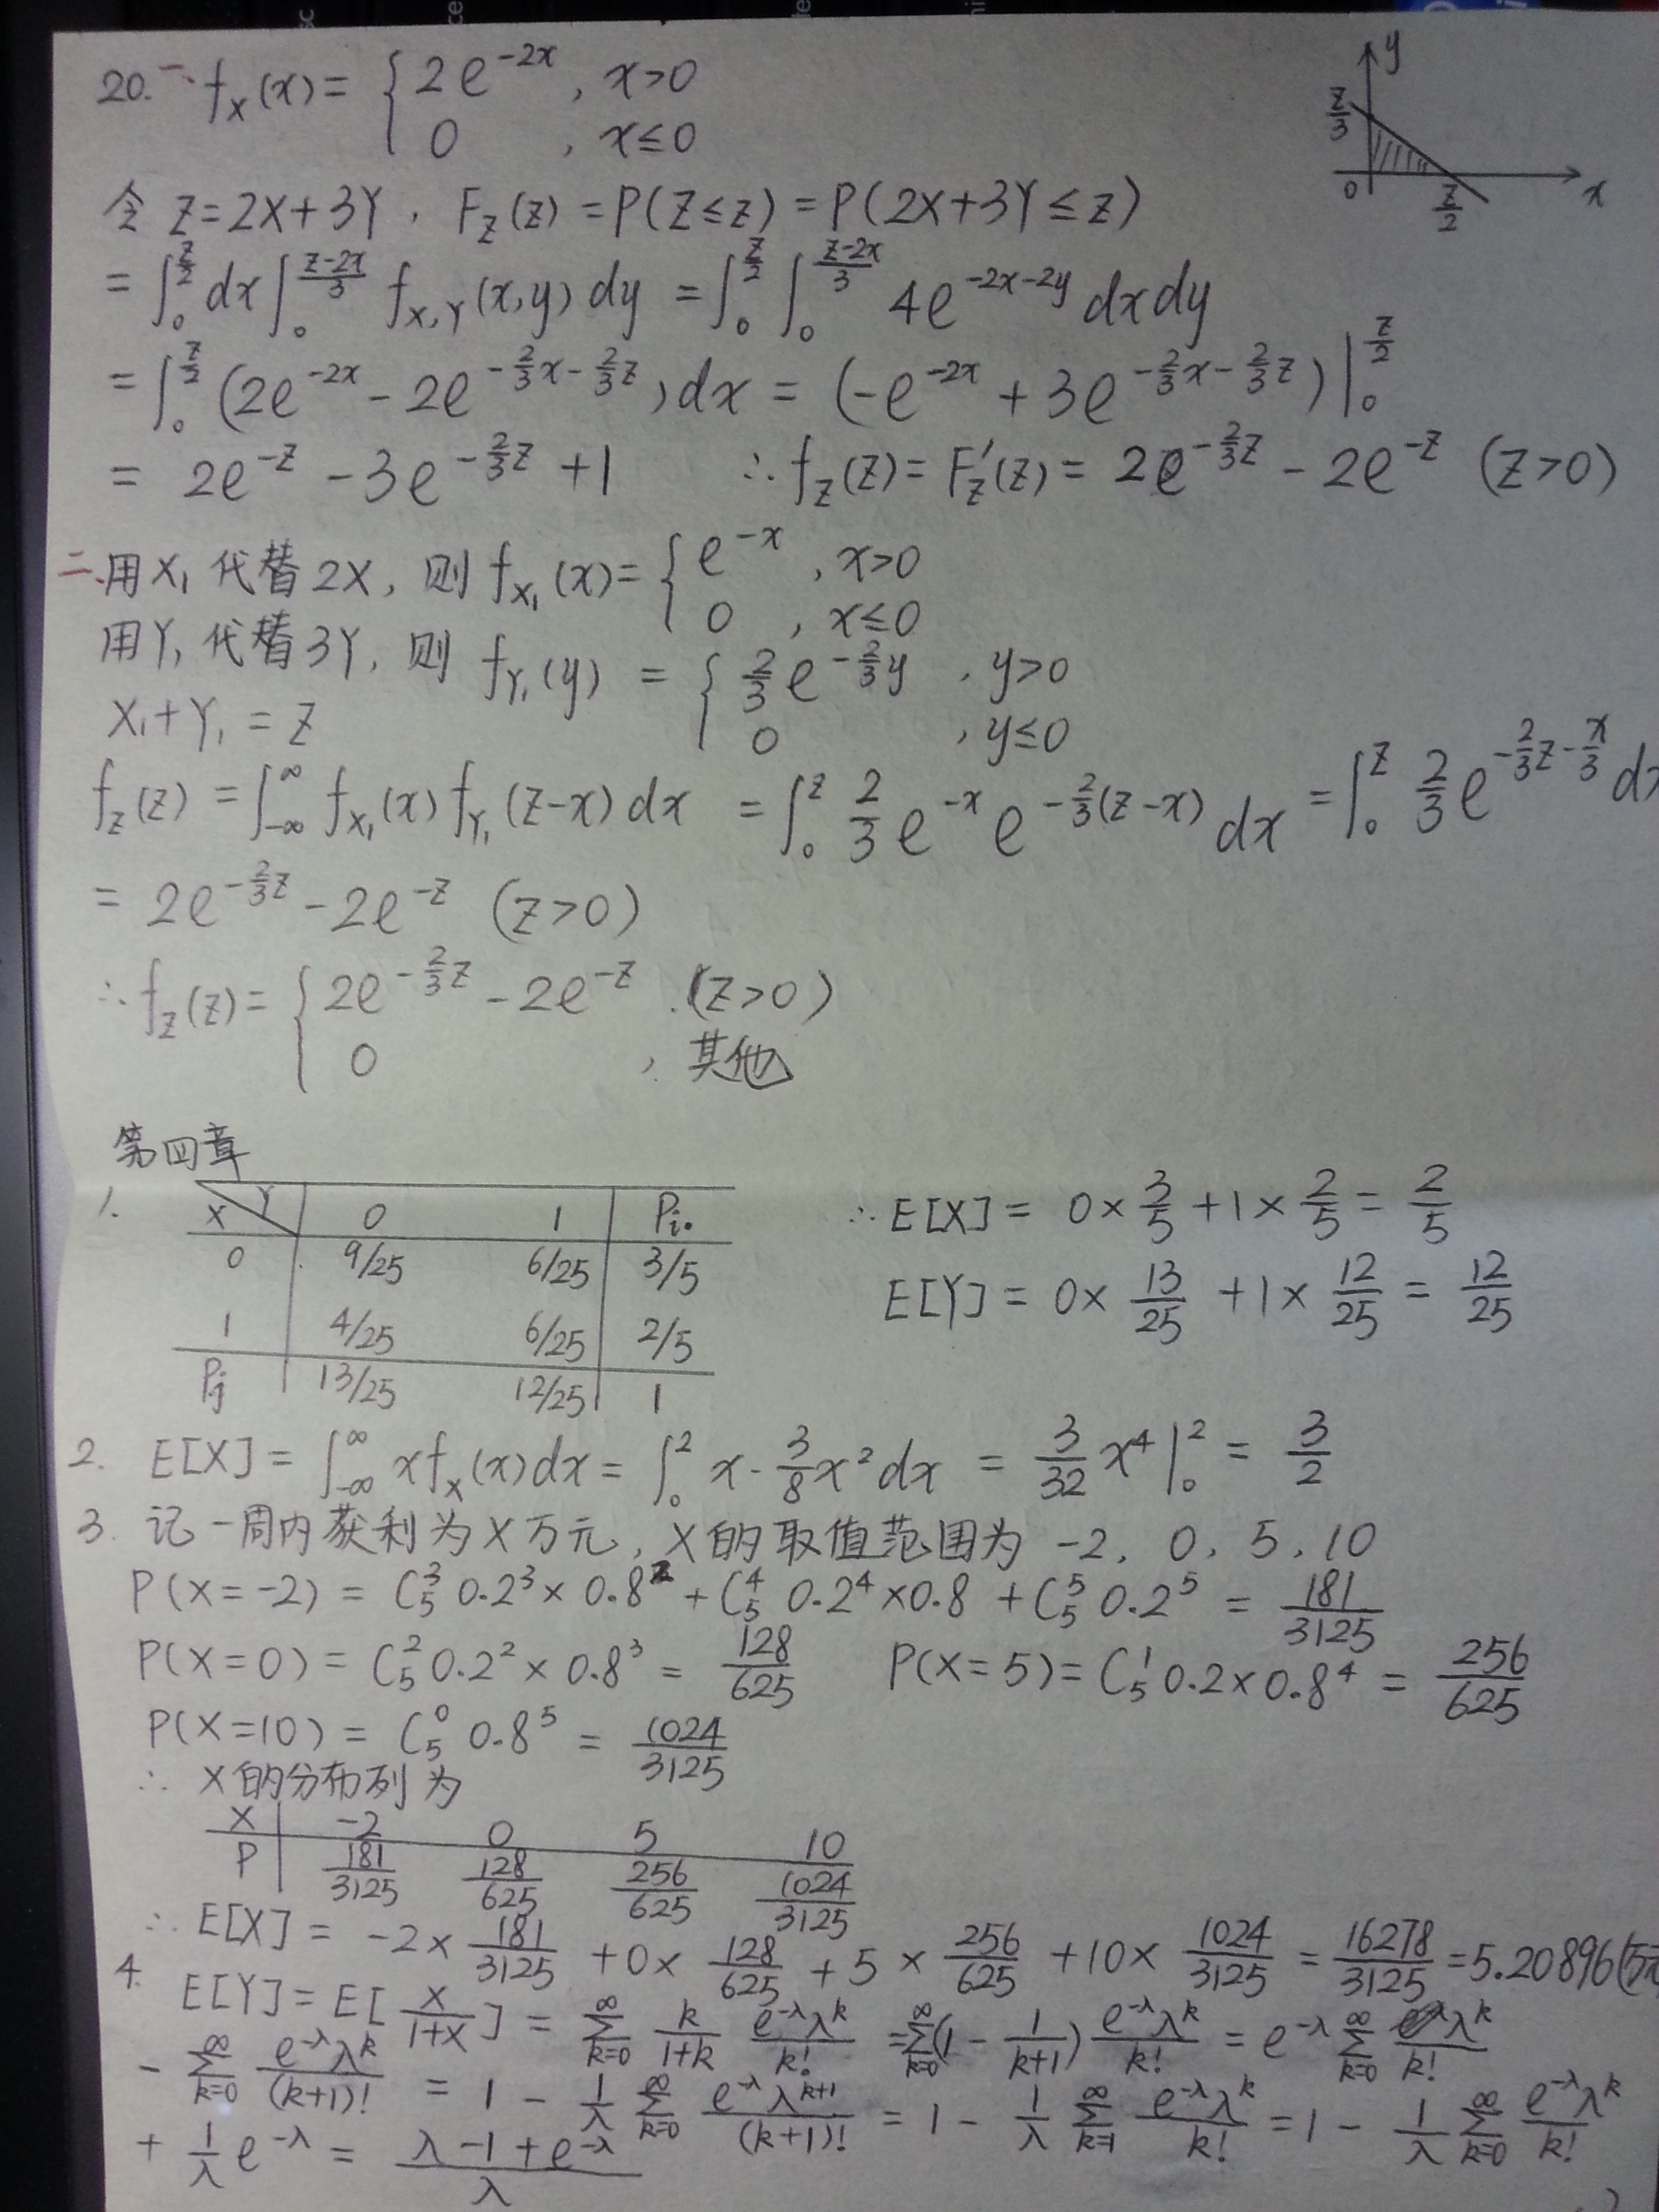 20. 一、 f_X(x) = { 2e^{-2x} , x>0
0 , x≤0
y
z/3
0
z/2
x
令 Z=2X+3Y , F_Z(z) = P(Z≤z) = P(2X+3Y≤z)
= ∫_0^{z/2} dx ∫_0^{(z-2x)/3} f_{X,Y}(x,y) dy = ∫_0^{z/2} ∫_0^{(z-2x)/3} 4e^{-2x-2y} dxdy
= ∫_0^{z/2} (2e^{-2x} - 2e^{-2/3x-2/3z}) dx = (-e^{-2x} + 3e^{-2/3x-2/3z}) |_0^{z/2}
= 2e^{-z} - 3e^{-2/3z} + 1 ∴ f_Z(z) = F'_Z(z) = 2e^{-2/3z} - 2e^{-z} (z>0)
二、用X₁代替2X, 则 f_{X₁}(x) = { e^{-x} , x>0
0 , x≤0
用Y₁代替3Y, 则 f_{Y₁}(y) = { 2/3 e^{-2/3y} , y>0
0 , y≤0
X₁+Y₁ = Z
f_Z(z) = ∫_{-∞}^{∞} f_{X₁}(x) f_{Y₁}(z-x) dx = ∫_0^z 2/3 e^{-x} e^{-2/3(z-x)} dx = ∫_0^z 2/3 e^{-2/3z-x/3} dx
= 2e^{-2/3z} - 2e^{-z} (z>0)
∴ f_Z(z) = { 2e^{-2/3z} - 2e^{-z} , (z>0)
0 , 其他
第四章
1.
X Y 0 1 Pi.
0 9/25 6/25 3/5
1 4/25 6/25 2/5
Pj 13/25 12/25 1
∴ E[X] = 0×3/5 + 1×2/5 = 2/5
E[Y] = 0×13/25 + 1×12/25 = 12/25
2. E[X] = ∫_{-∞}^{∞} x f_X(x) dx = ∫_0^2 x·3/8x² dx = 3/32 x⁴ |_0^2 = 3/2
3. 记一周内获利为X万元, X的取值范围为 -2, 0, 5, 10
P(X=-2) = C_5^3 0.2³×0.8² + C_5^4 0.2⁴×0.8 + C_5^5 0.2⁵ = 181/3125
P(X=0) = C_5^2 0.2²×0.8³ = 128/625 P(X=5) = C_5^1 0.2×0.8⁴ = 256/625
P(X=10) = C_5^0 0.8⁵ = 1024/3125
∴ X的分布列为
X -2 0 5 10
P 181/3125 128/625 256/625 1024/3125
∴ E[X] = -2×181/3125 + 0×128/625 + 5×256/625 + 10×1024/3125 = 16278/3125 = 5.20896
4. E[Y] = E[X/(1+X)] = Σ_{k=0}^{∞} k/(1+k) e^{-λ}λ^k/k! = Σ_{k=0}^{∞} (1 - 1/(k+1)) e^{-λ}λ^k/k! = e^{-λ} Σ_{k=0}^{∞} λ^k/k!
- Σ_{k=0}^{∞} e^{-λ}λ^k/(k+1)! = 1 - 1/λ Σ_{k=0}^{∞} e^{-λ}λ^{k+1}/(k+1)! = 1 - 1/λ Σ_{k=1}^{∞} e^{-λ}λ^k/k! = 1 - 1/λ Σ_{k=0}^{∞} e^{-λ}λ^k/k!
+ 1/λ e^{-λ} = (λ-1+e^{-λ})/λ